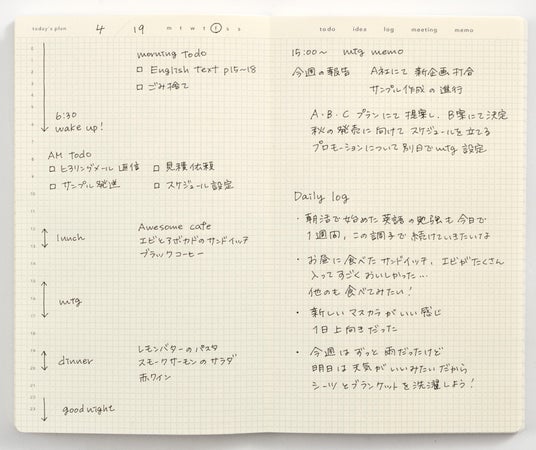 today's plan 4 19 m t w t f s s
0
1
2
3
4
5
6
7
8
9
10
11
12
13
14
15
16
17
18
19
20
21
22
23
morning todo
□ English text p15~18
□ ごみ捨て
6:30
wake up!
AM todo
□ ヒアリングメール返信 □ 見積依頼
□ サンプル発送 □ スケジュール設定
lunch
Awesome cafe
エビとアボカドのサンドイッチ
ブラックコーヒー
mtg
dinner
レモンバターのパスタ
スモークサーモンのサラダ
赤ワイン
good night
todo idea log meeting memo
15:00~ mtg memo
今週の報告 A社にて新企画打合
サンプル作成の進行
A・B・Cプランにて提案し、B案にて決定
秋の発売に向けてスケジュールを立てる
プロモーションについて別日でmtg設定
Daily log
・朝活で始めた英語の勉強も今日で
1週間、この調子で続けていきたいな
・お昼に食べたサンドイッチ、エビがたくさん
入ってすごくおいしかった…
他のも食べてみたい!
・新しいマスカラがいい感じ
1日上向きだった
・今週はずっと雨だったけど
明日は天気がいいみたいだから
シーツとブランケットを洗濯しよう!